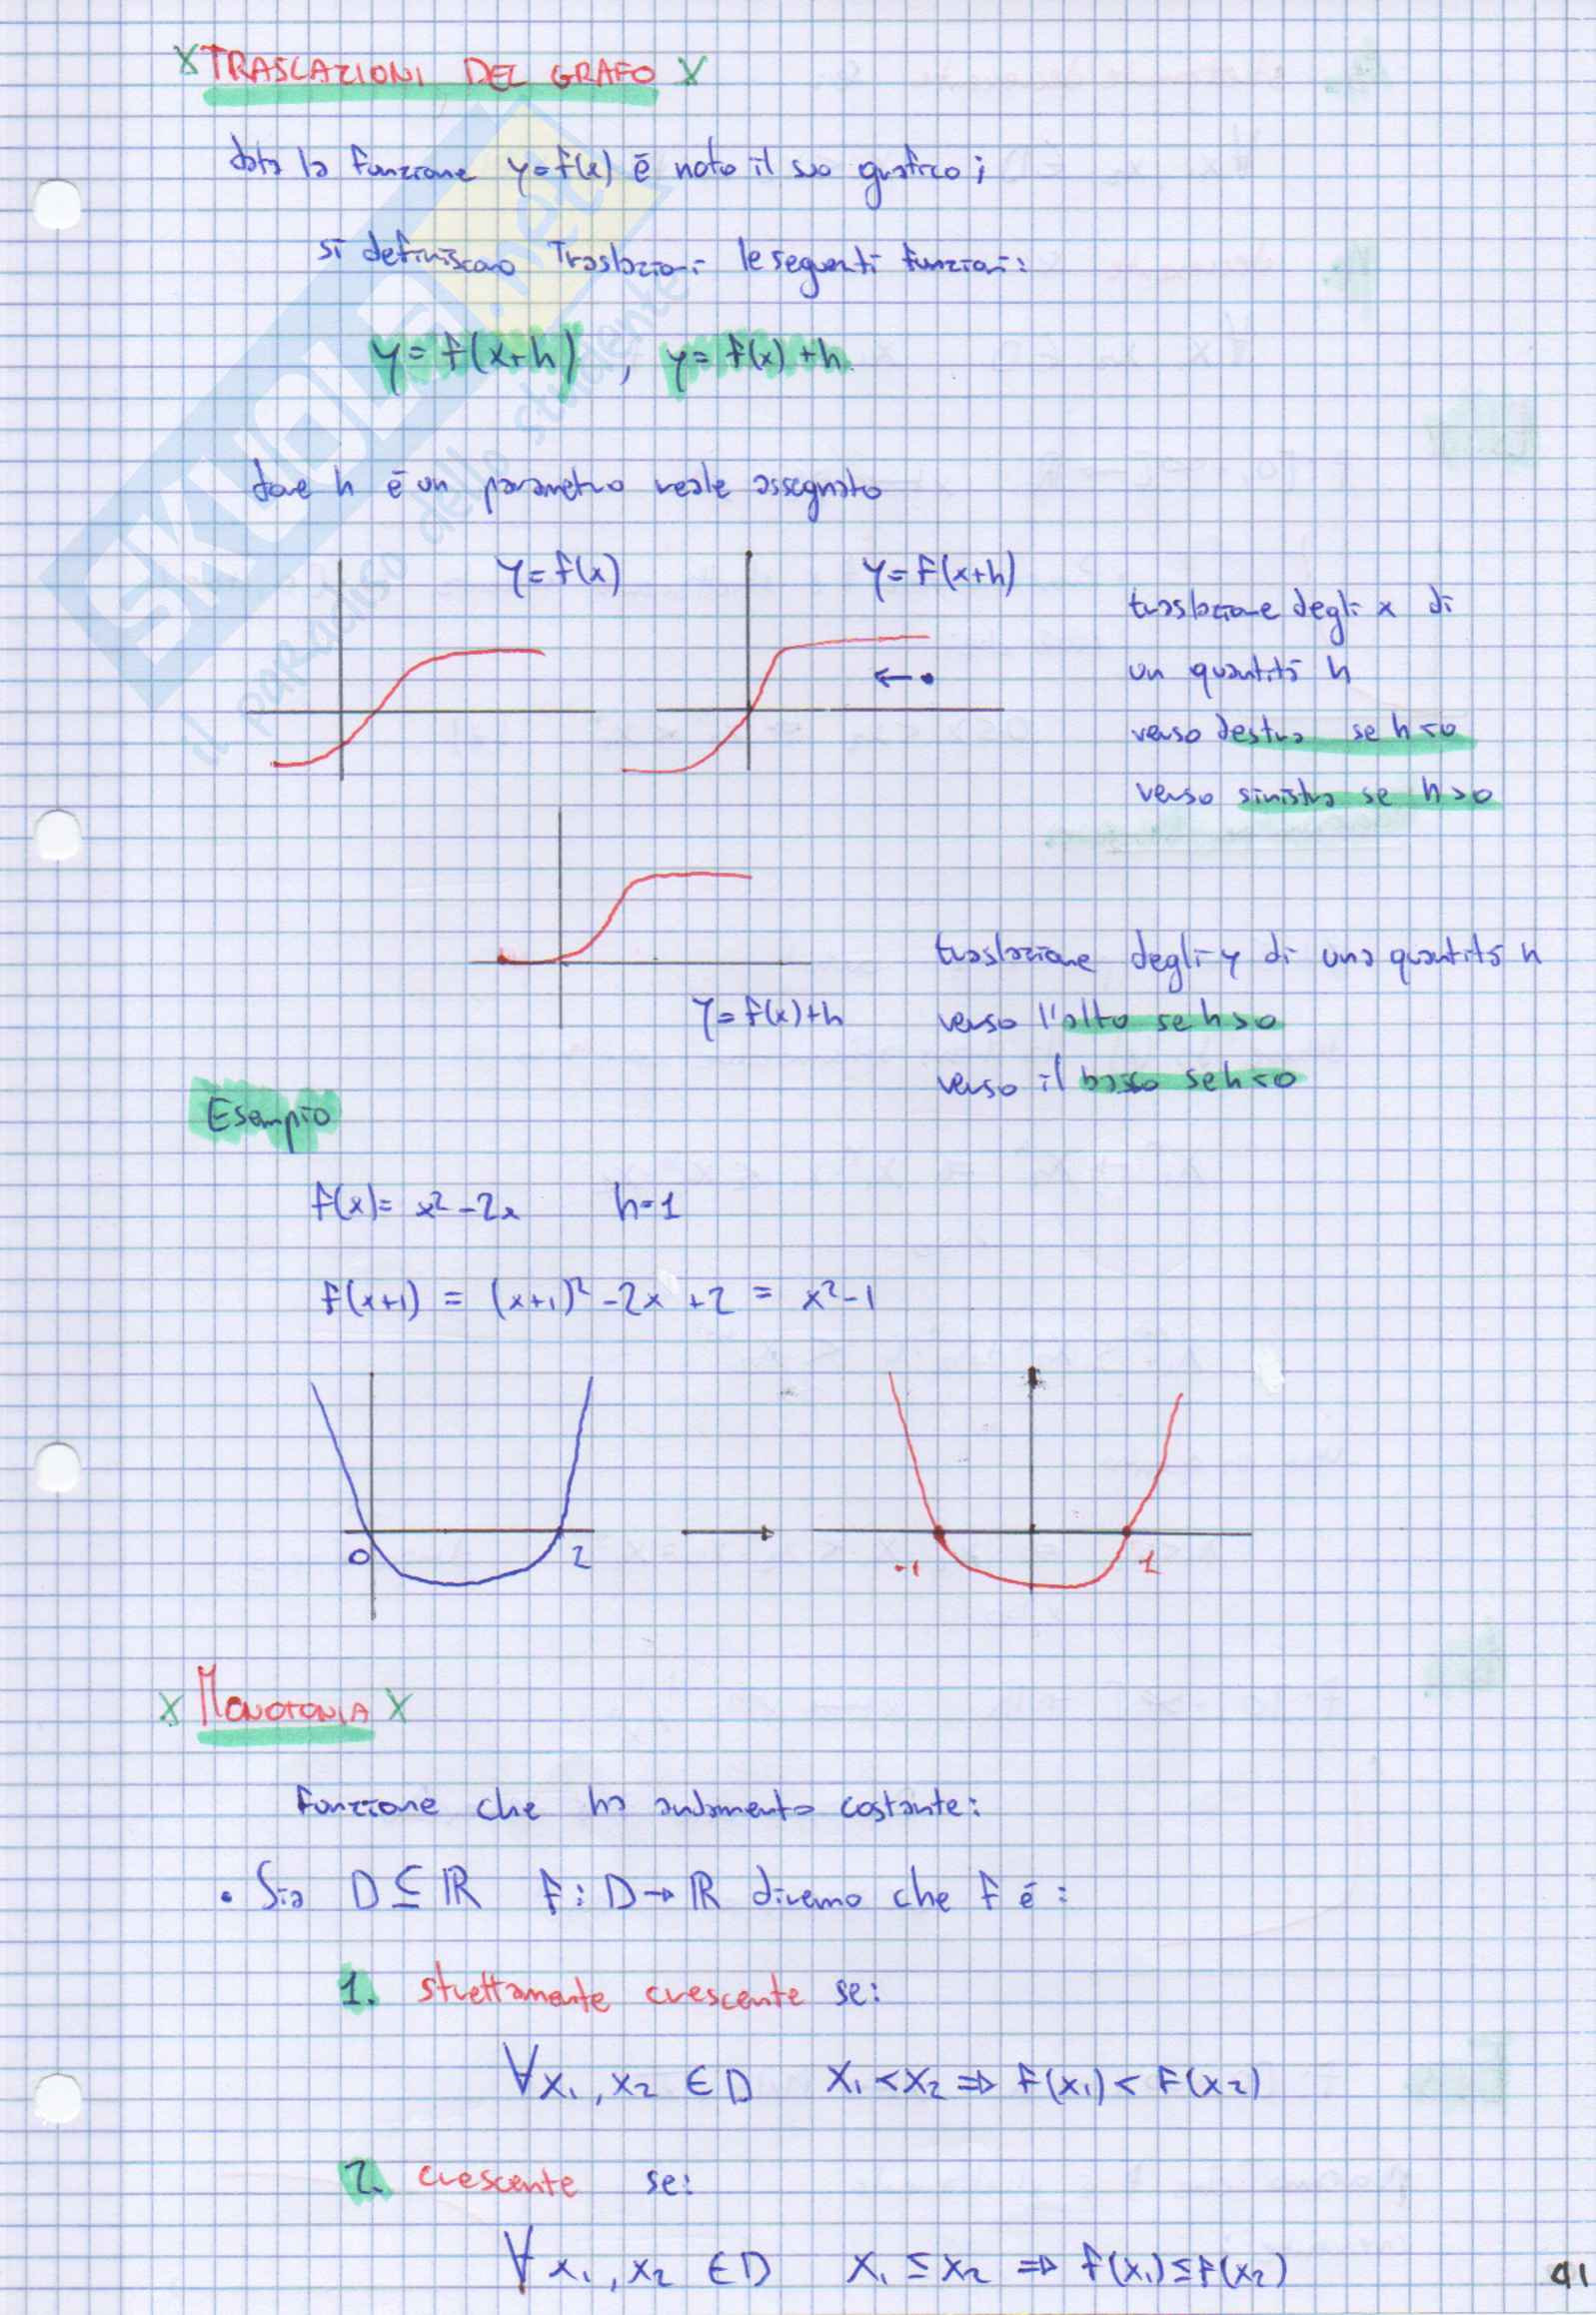 X TRASLAZIONI DEL GRAFO X
data la funzione y=f(x) è noto il suo grafico;
si definiscono Traslazioni le seguenti funzioni:
y= f(x+h) , y= f(x)+h
dove h è un parametro reale assegnato
y=f(x)
y=f(x+h)
traslazione degli x di
un quantità h
verso destra se h<0
verso sinistra se h>0
traslazione degli y di una quantità h
y=f(x)+h
verso l'alto se h>0
verso il basso se h<0
Esempio
f(x)= x²-2x h=1
f(x+1) = (x+1)² -2x +2 = x²-1
0 2
-1 1
X MONOTONIA X
funzione che ha andamento costante:
• Sia D⊆ℝ f: D→ℝ diremo che f è:
1. strettamente crescente se:
∀x₁,x₂ ∈D x₁<x₂ ⇒ f(x₁)< f(x₂)
2. crescente se:
∀x₁,x₂ ∈D x₁≤x₂ ⇒ f(x₁)≤f(x₂)
41
SKUOLA.net
il paradiso dello studente